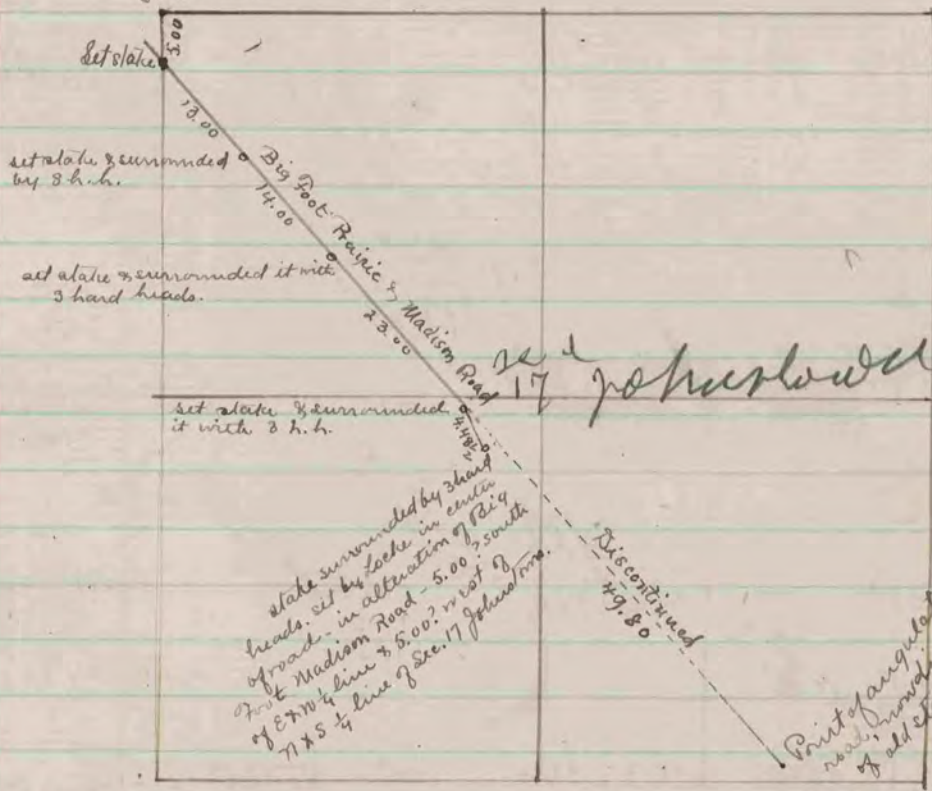 5.00
Set stake
13.00
set stake & surrounded
by 3 h.h.
Big Foot Prairie & Madison Road
14.00
set stake & surrounded it with
3 hard heads.
23.00
Sec
17 Johnstown
set stake & surrounded
it with 3 h.h.
4.48½
stake surrounded by 3 hard
heads. set by Locke in center
of road - in alteration of Big
Foot Madison Road - 5.00? south
of E & W ¼ line & 5.00? west of
N & S ¼ line of Sec. 17 Johnstown.
Discontinued
49.80
Point of angular
road,
of old